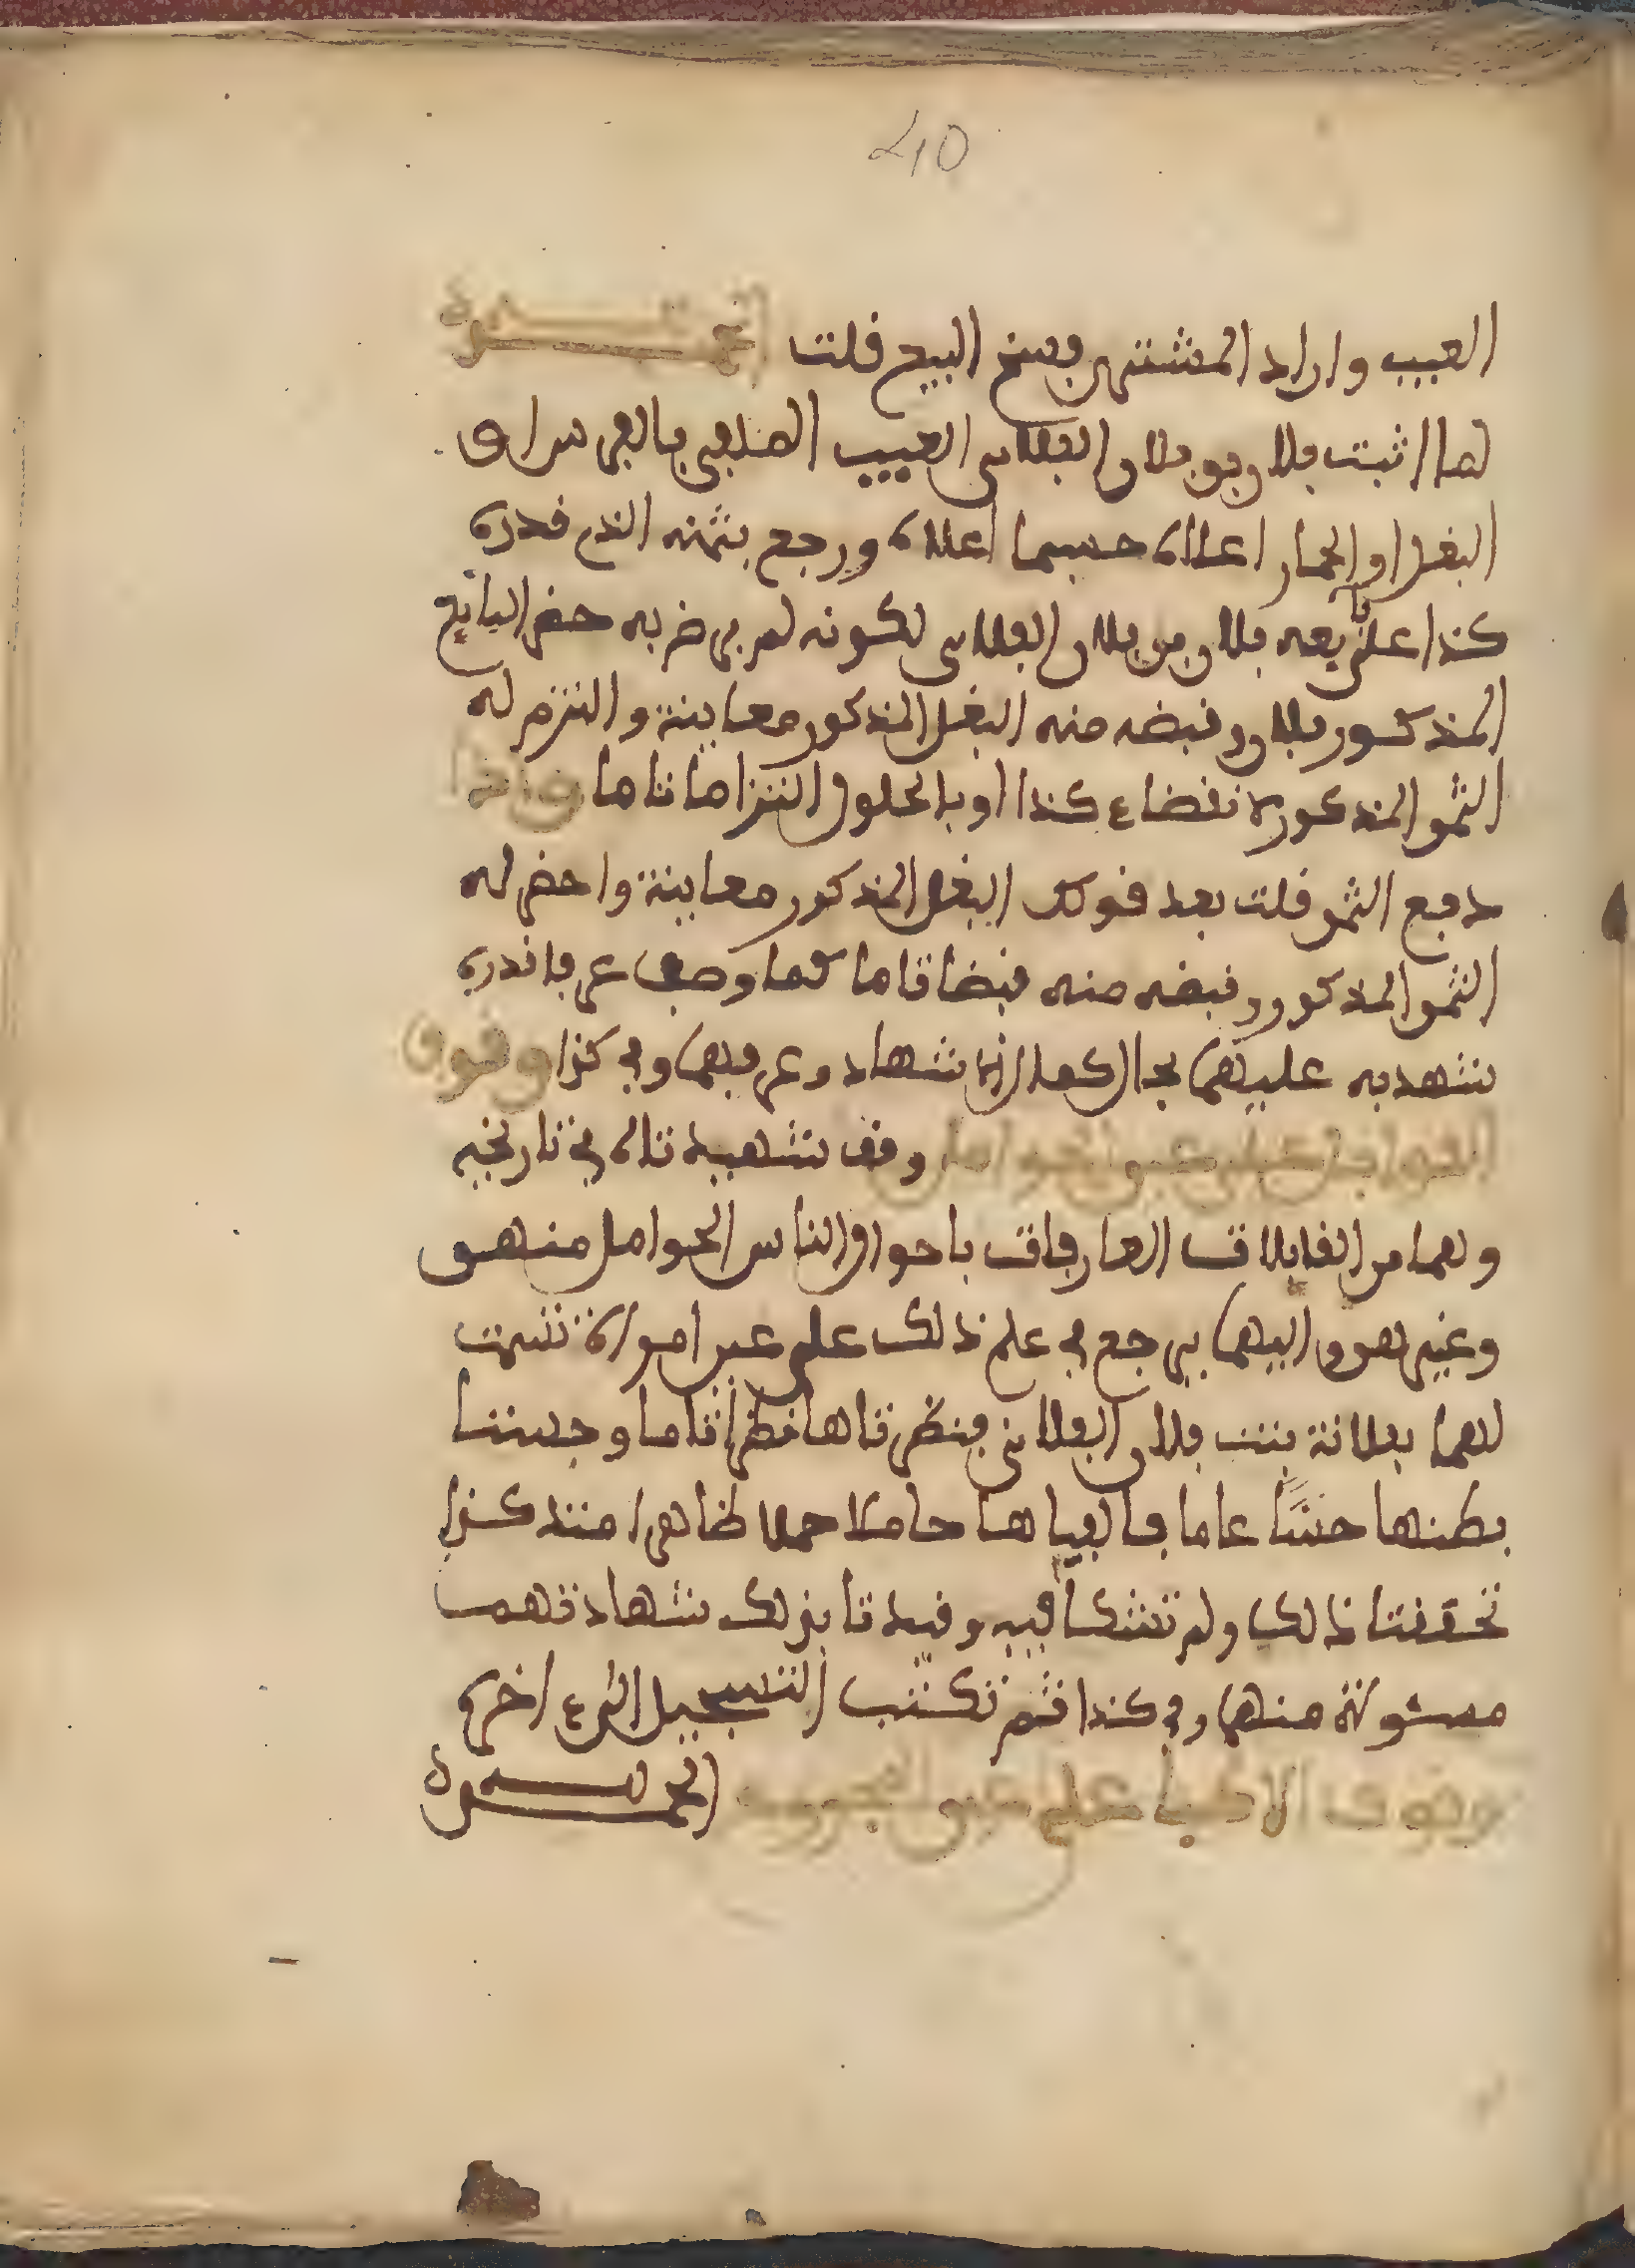 410
العيب واراد المشتري فسخ البيع قلت الحمد لله
لما اثبت فلان بن فلان الفلاني العيب الملفى بالفرس او
البغل او الحمار اعلاه حسبما اعلاه ورجع بثمنه الذي قدره
كذا على بايعه فلان بن فلان الفلاني لكونه لم يرض به حضر البايع
المذكور فلان وقبضه منه البغل المذكور معاينة والتزم له
الثمن المذكور لانقضاء كذا او بالحلول التزاما تاما واذا
دفع الثمن قلت بعد قولك البغل المذكور معاينة واحضر له
الثمن المذكور وقبضه منه قبضا تاما كما وصف عرفا قدره
شهد به عليهما بحال كمال الاشهاد وعرفهما وفي كذا وقوف
القوابل على عين الحوامل وقف شهيدتاه في تاريخه
وهما من القابلات العارفات باحوال النساء الحوامل منهن
وغيرهن واليهما يرجع في علم ذلك على عين امراة تسمت
لهما بفلانة بنت فلان الفلاني فنظرتاها نظرا تاما وجستا
بطنها جسًّا عاما فالفياها حاملا حملا ظاهرا منذ كذا
تحققتا ذلك ولم تشكا فيه وقيدتا بذلك شهادتهما
مسئولة منهما وفي كذا ثم تكتب التسجيل الى اخره
وقوف الاطبا على عين المجروح الحمد لله